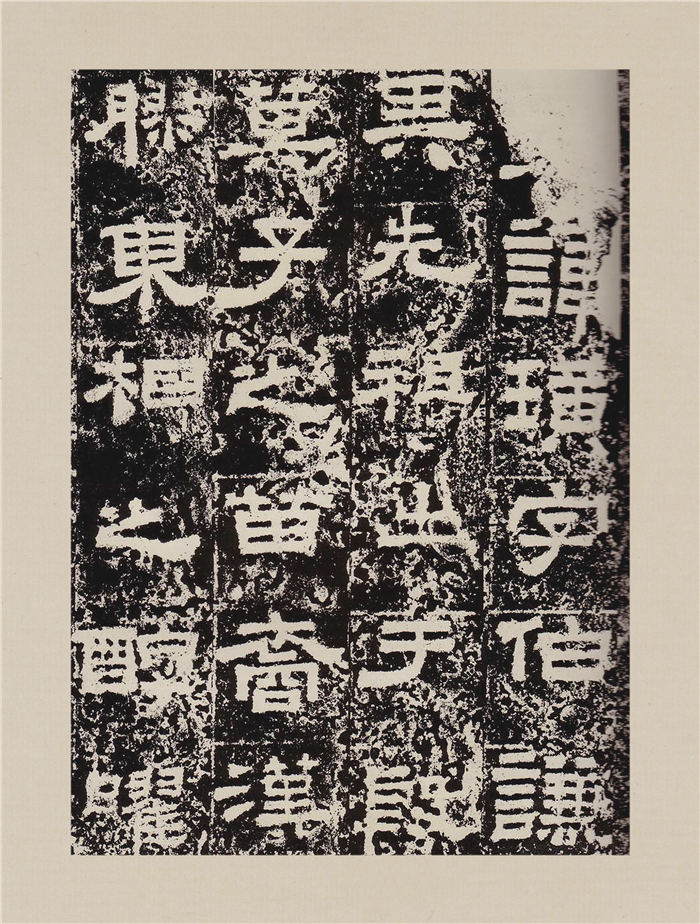 諱璜字伯謙
其先祖出于殷
箕子之苗裔漢
膠東相之醇曜